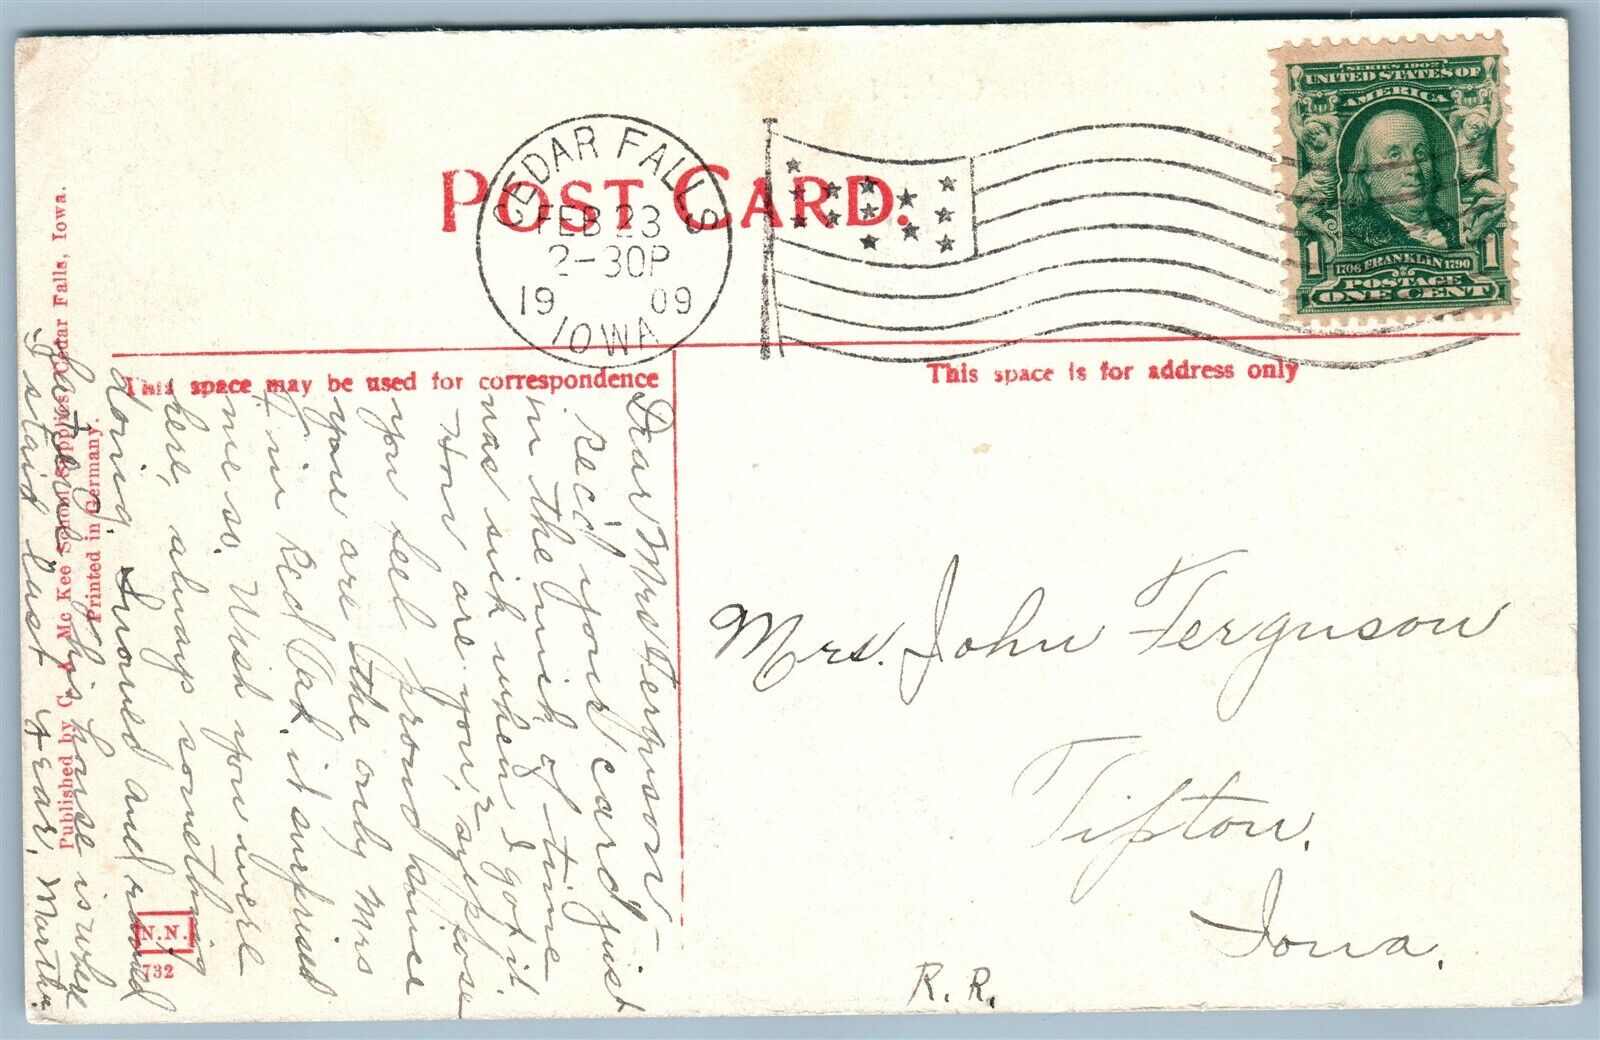 POST CARD.
CEDAR FALLS
FEB 23
2-30P
19 09
IOWA
SERIES 1902
UNITED STATES OF
AMERICA
1 1706 FRANKLIN 1790 1
POSTAGE
ONE CENT
This space may be used for correspondence
This space is for address only
Dear Mrs Ferguson—
Rec'd your card just
in the nick of time
was sick when I got it.
How are you? suppose
you feel proud since
you are the only Mrs
F. in Red Oak, it surprised
me so. Wish you were
here, always something
doing. moved and
this house is where
I staid last year. Martha
Mrs. John Ferguson
Tipton,
Iowa.
R. R.
Published by C. A. Mc Kee School Supplies, Cedar Falls, Iowa.
Printed in Germany.
N.N.
732